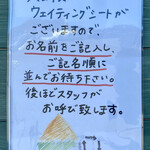 ウェイティングシートが
ございますので、
お名前をご記入し、
ご記名順に
並んでお待ち下さい。
後ほどスタッフが
お呼び致します。